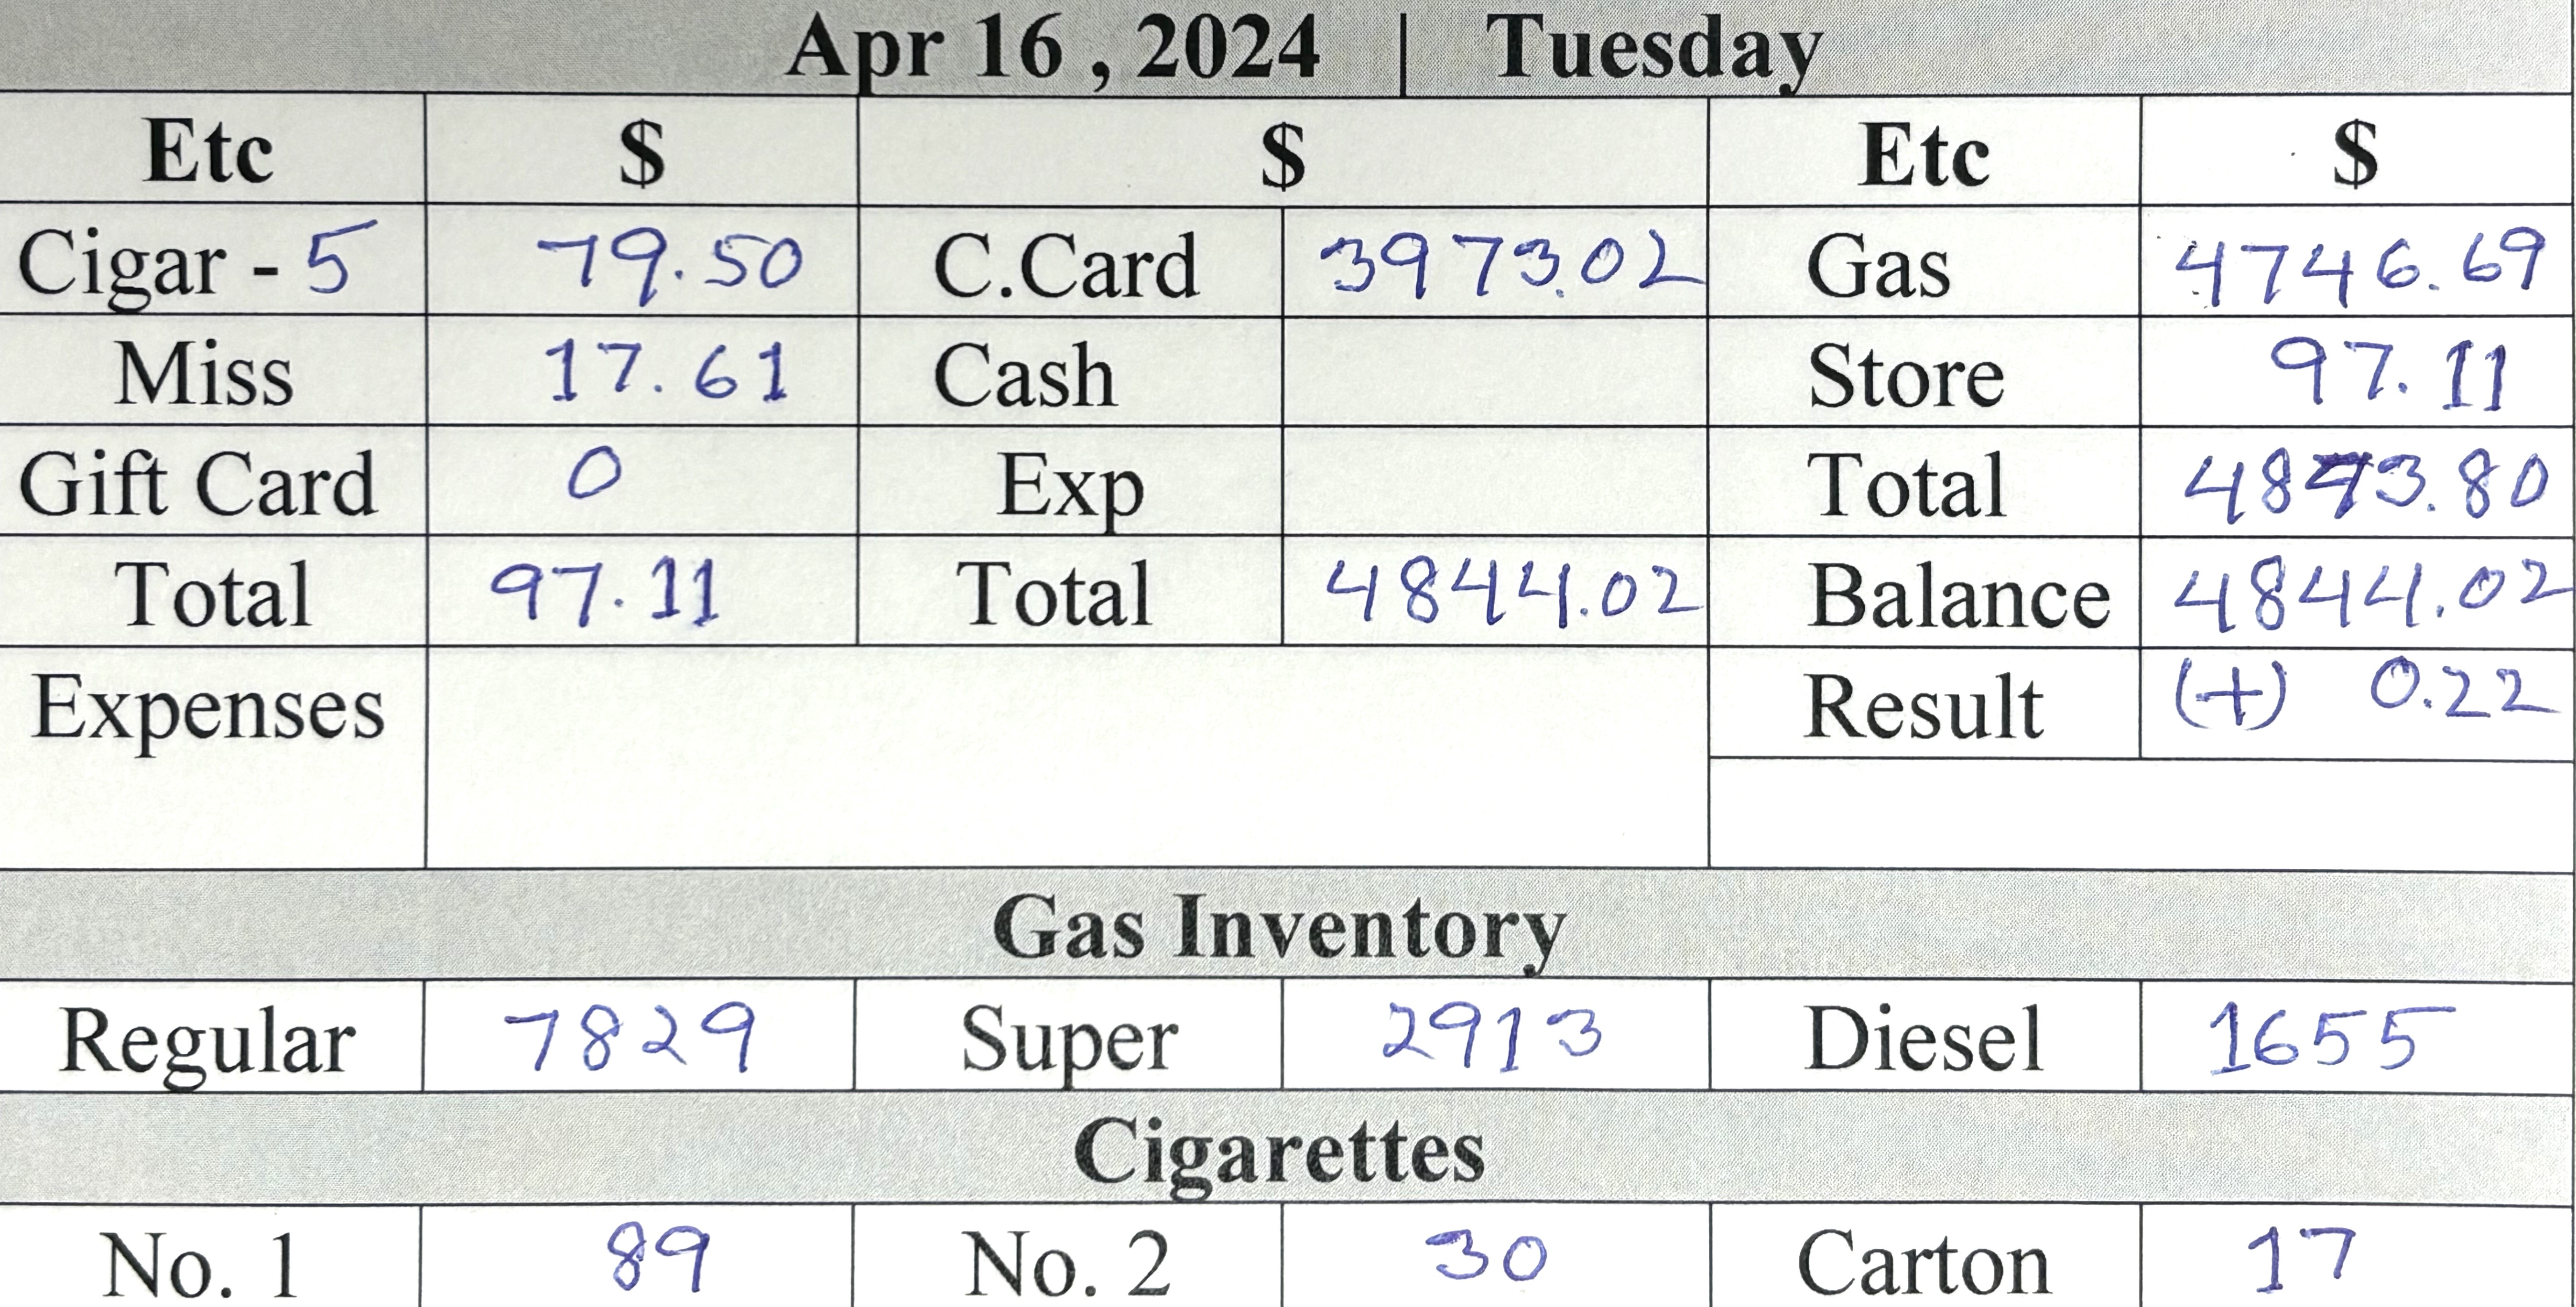 Apr 16 , 2024 | Tuesday
Etc $ $ Etc $
Cigar - 5 79.50 C.Card 3973.02 Gas 4746.69
Miss 17.61 Cash Store 97.11
Gift Card 0 Exp Total 4843.80
Total 97.11 Total 4844.02 Balance 4844.02
Expenses Result (+) 0.22
Gas Inventory
Regular 7829 Super 2913 Diesel 1655
Cigarettes
No. 1 89 No. 2 30 Carton 17